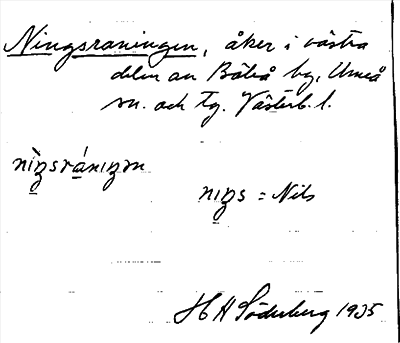 Ningsraningen, åker i västra
delen av Böleå by, Umeå
sn. och tg. Västerb. l.
nìŋsránıŋən
nıŋs = Nils
H H Söderberg 1935